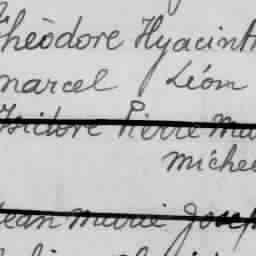 Théodore Hyacint
marcel Léon
Isidore Pierre Ma
miche
Jean Marie Josep